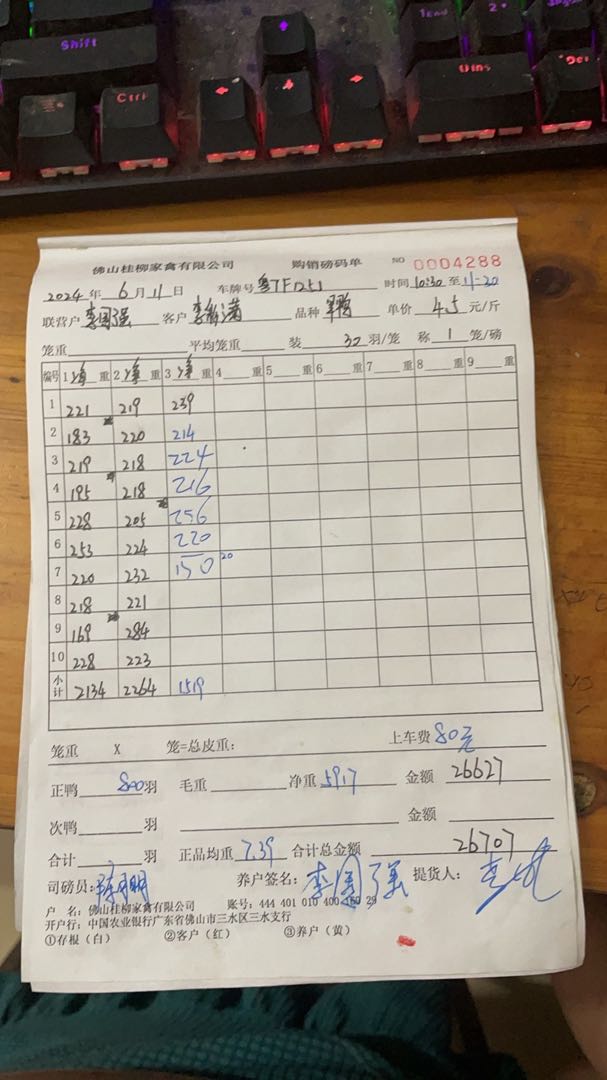 Shift
Ctrl
End
Ins
Del
佛山桂柳家禽有限公司 购销磅码单 NO 0004288
2024 年 6 月 11 日 车牌号 粤TF1251 时间 10:30 至 11:20
联营户 李国强 客户 品种 单价 4.5 元/斤
笼重 平均笼重 装 32 羽/笼 称 1 笼/磅
编号 1 净 重 2 净 重 3 净 重 4 重 5 重 6 重 7 重 8 重 9 重
1 221 219 239
2 183 220 214
3 219 218 224
4 195 218 216
5 228 205 256
6 253 224 220
7 220 232 150 20
8 218 221
9 169 284
10 228 223
小计 2134 2264 1519
笼重 X 笼=总皮重: 上车费 80元
正鸭 800 羽 毛重 净重 5917 金额 26627
次鸭 羽 金额
合计 羽 正品均重 7.39 合计总金额 26707
司磅员: 养户签名: 李国强 提货人:
户 名: 佛山桂柳家禽有限公司 账号: 444 401 010 400 160 29
开户行: 中国农业银行广东省佛山市三水区三水支行
①存根(白) ②客户(红) ③养户(黄)